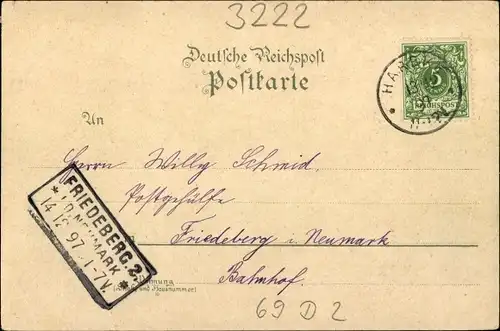 3222
Deutsche Reichspost
Postkarte
5
REICHSPOST
An
Herrn Willy Schmid.
Postgehülfe
Friedeberg i. Neumark
Bahnhof.
FRIEDEBERG 2.
NEUMARK
14 97 1-7V.
und Hausnummer)
69 D 2